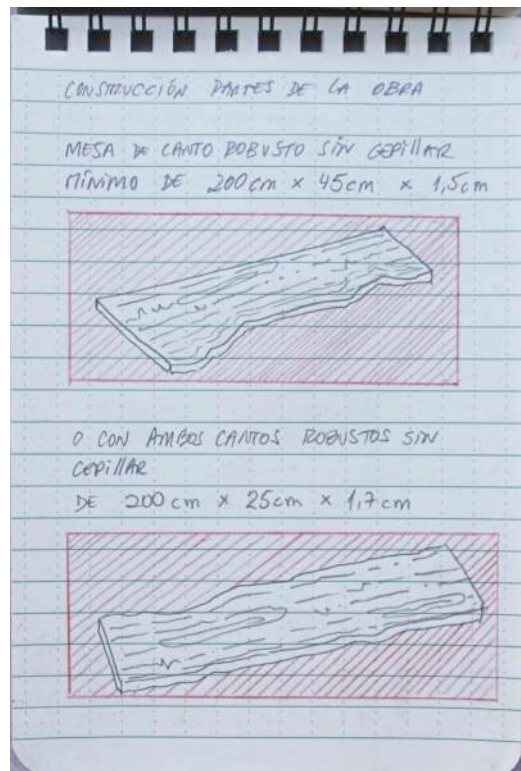 CONSTRUCCIÓN PARTES DE LA OBRA
MESA DE CANTO ROBUSTO SIN CEPILLAR
MÍNIMO DE 200 cm x 45 cm x 1,5 cm
O CON AMBOS CANTOS ROBUSTOS SIN
CEPILLAR
DE 200 cm x 25 cm x 1,7 cm